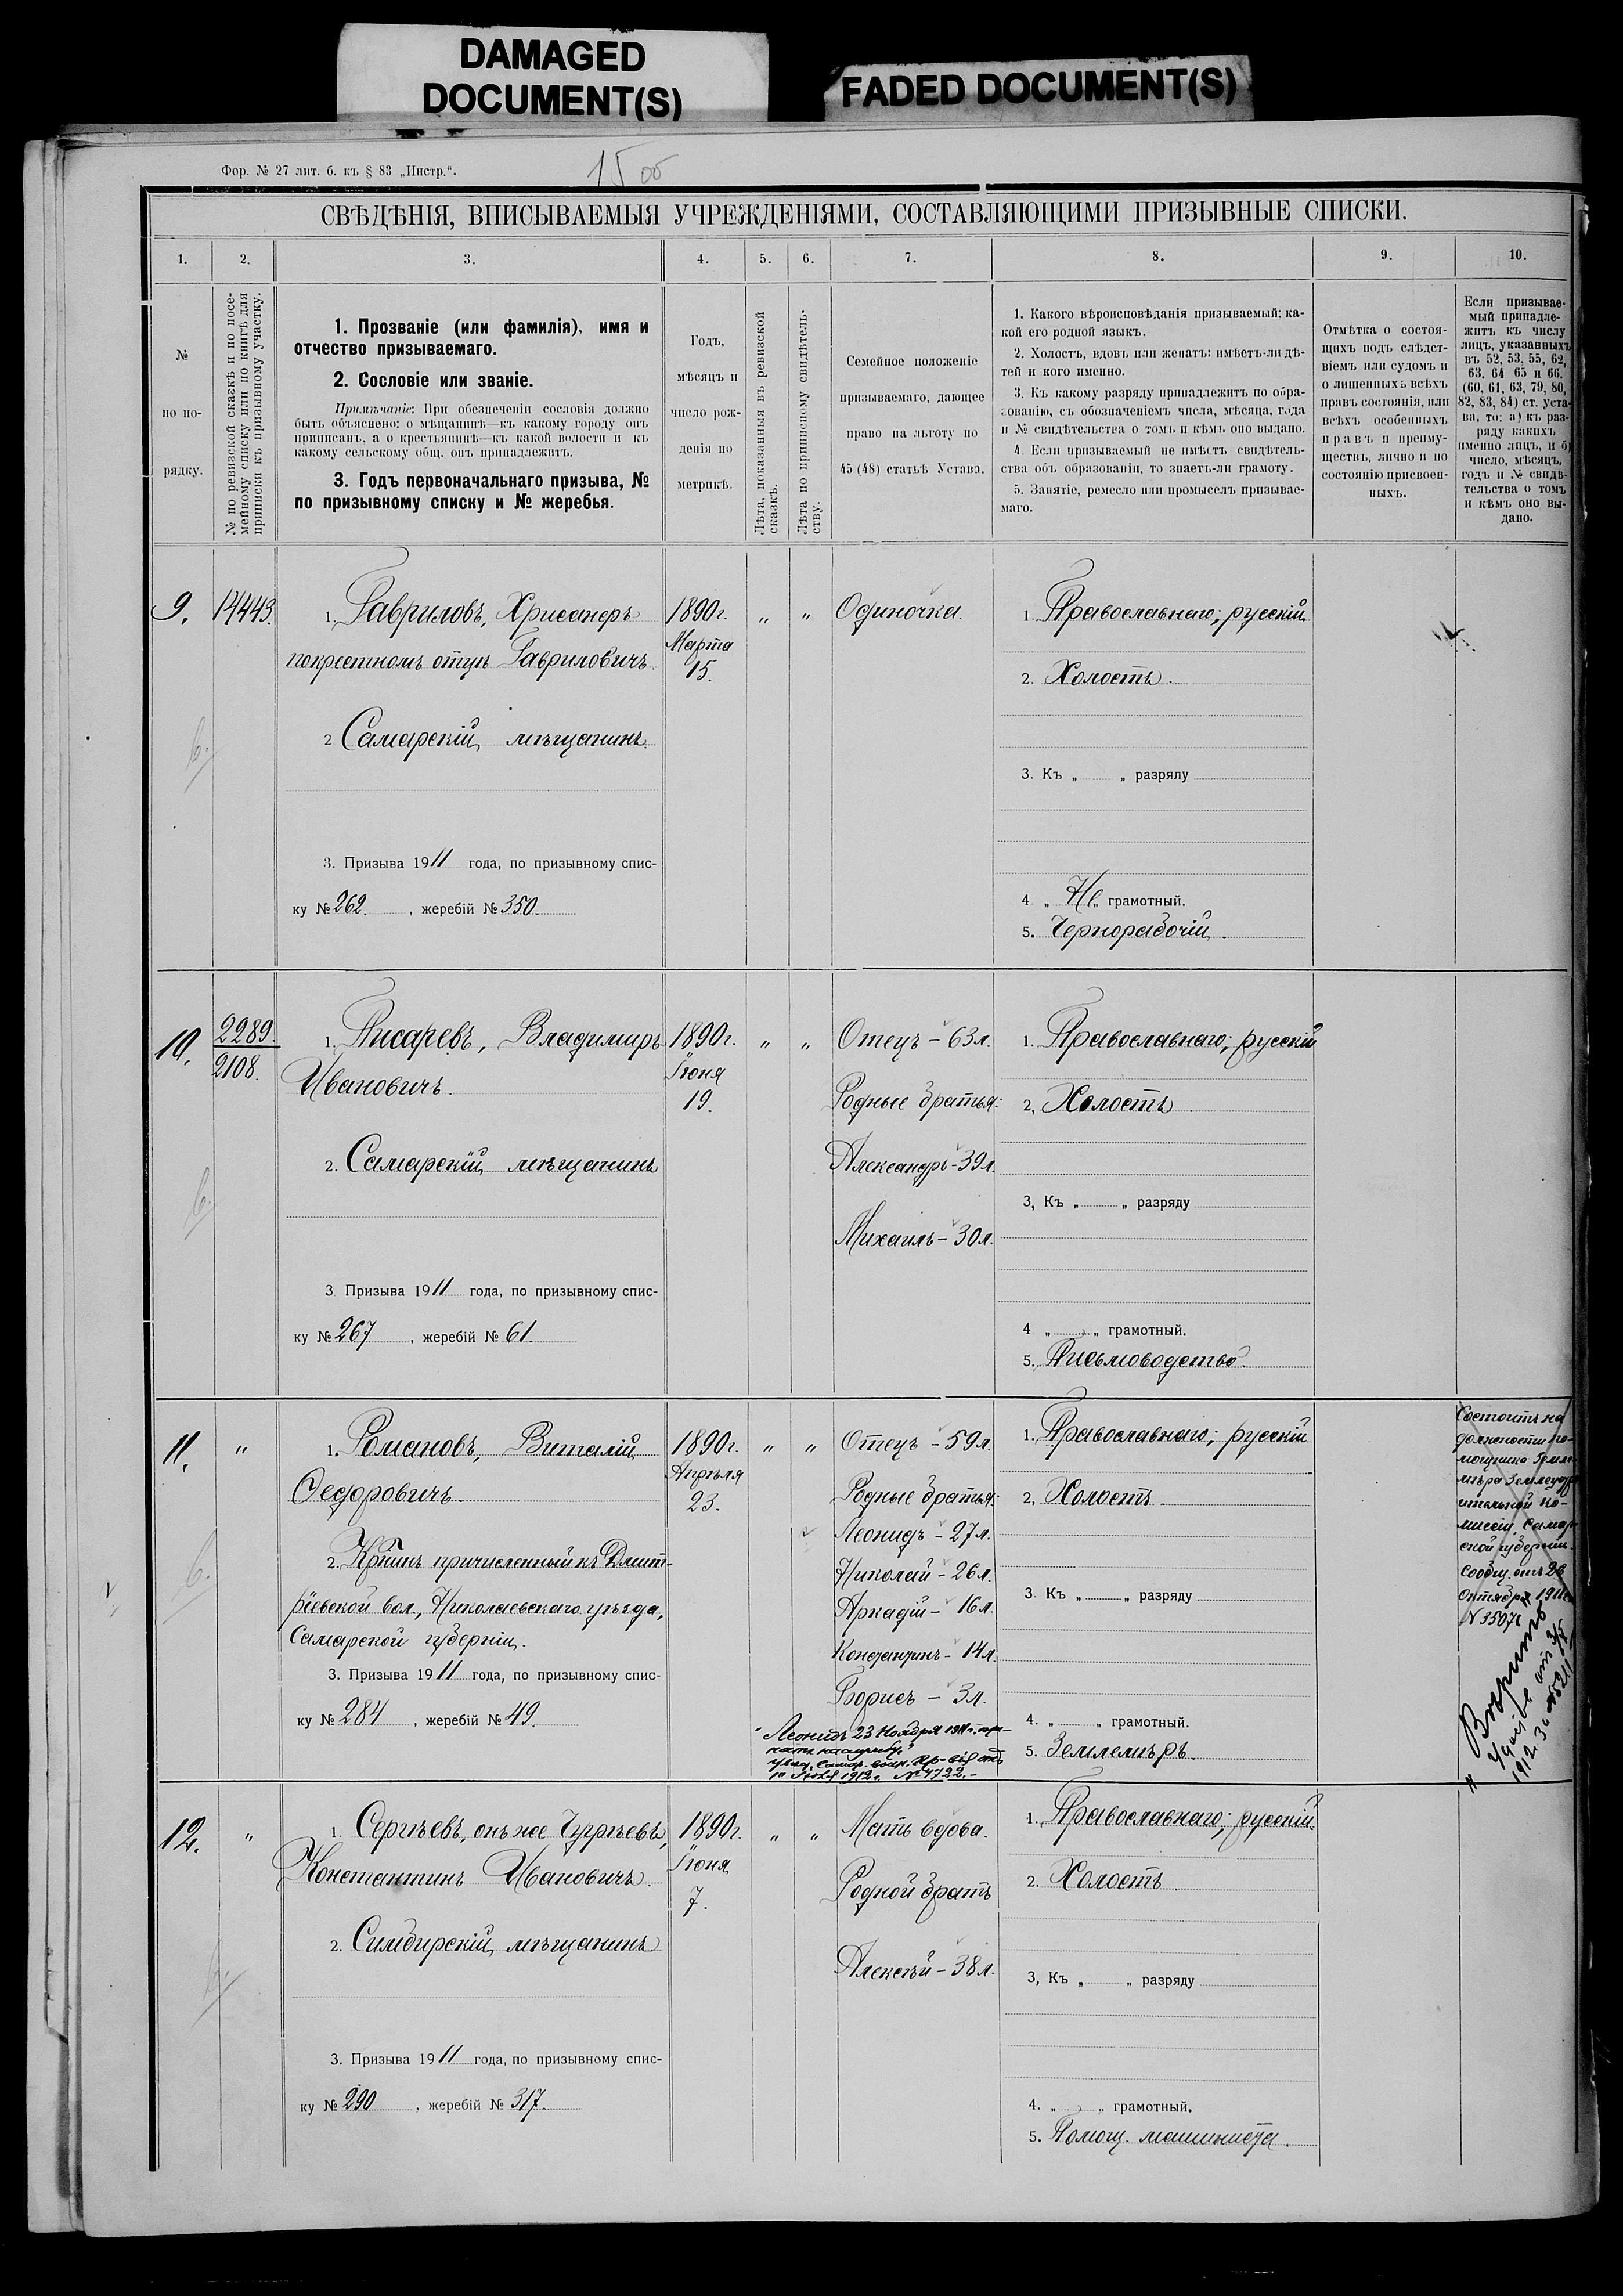 DAMAGED
DOCUMENT(S)
FADED DOCUMENT(S)
Фор. № 27 лит. б. къ § 83 „Инстр.“.
СВѢДѢНІЯ, ВПИСЫВАЕМЫЯ УЧРЕЖДЕНІЯМИ, СОСТАВЛЯЮЩИМИ ПРИЗЫВНЫЕ СПИСКИ.
1.
2.
3.
4.
5.
6.
7.
8.
9.
10.
№
по по-
рядку.
№ по ревизской сказкѣ и по посе-
мейному списку или по книгѣ для
приписки къ призывному участку.
1. Прозваніе (или фамилія), имя и
отчество призываемаго.
2. Сословіе или званіе.
Примѣчаніе: При обезпеченіи сословія должно
быть объяснено: о мѣщанинѣ—къ какому городу онъ
приписанъ, а о крестьянинѣ—къ какой волости и къ
какому сельскому общ. онъ принадлежитъ.
3. Годъ первоначальнаго призыва, №
по призывному списку и № жеребья.
Годъ,
мѣсяцъ и
число рож-
денія по
метрикѣ.
Лѣта, показанныя въ ревизской
сказкѣ.
Лѣта по приписному свидѣтель-
ству.
Семейное положеніе
призываемаго, дающее
право на льготу по
45 (48) статьѣ Устава.
1. Какого вѣроисповѣданія призываемый; ка-
кой его родной языкъ.
2. Холостъ, вдовъ или женатъ: имѣетъ-ли дѣ-
тей и кого именно.
3. Къ какому разряду принадлежитъ по обра-
зованію, съ обозначеніемъ числа, мѣсяца, года
и № свидѣтельства о томъ и кѣмъ оно выдано.
4. Если призываемый не имѣетъ свидѣтель-
ства объ образованіи, то знаетъ-ли грамоту.
5. Занятіе, ремесло или промыселъ призывае-
маго.
Отмѣтка о состоя-
щихъ подъ слѣдст-
віемъ или судомъ и
о лишенныхъ всѣхъ
правъ состоянія, или
всѣхъ особенныхъ
правъ и преиму-
ществъ, лично и по
состоянію присвоен-
ныхъ.
Если призывае-
мый принадле-
житъ къ числу
лицъ, указанныхъ
въ 52, 53, 55, 62,
63, 64 65 и 66.
(60, 61, 63, 79, 80,
82, 83, 84) ст. уста-
ва, то: а) къ раз-
ряду какихъ
именно лицъ, и б)
число, мѣсяцъ,
годъ и № свидѣ-
тельства о томъ
и кѣмъ оно вы-
дано.
9.
14443.
1. Гавриловъ, Хрисанфъ
по крестномъ отцѣ Гавриловичъ.
2 Самарскій мѣщанинъ.
3. Призыва 1911 года, по призывному спис-
ку № 262. , жеребій № 350.
1890г.
Марта
15.
„
„
Одиночка.
1 Православнаго; русскій
2. Холостъ.
3. Къ „ „ разрялу
4 „ Не „ грамотный.
5. Чернорабочій.
10.
2289.
2108.
1. Писаревъ, Владиміръ
Ивановичъ.
2. Самарскій мѣщанинъ
3 Призыва 1911 года, по призывному спис-
ку № 267 , жеребій № 61.
1890г.
Іюня
19.
„
„
Отецъ – 63л.
Родные братья:
Александръ – 39л.
Михаилъ – 30л.
1. Православнаго; русскій
2, Холостъ.
3, Къ „ „ разряду
4 „ „ грамотный.
5. Письмоводство.
11.
„
1. Романовъ, Виталій
Федоровичъ.
2. Кр̃нинъ причисленный къ Дмит-
ріевской вол., Николаевскаго уѣзда,
Самарской губерніи.
3. Призыва 1911 года, по призывному спис-
ку № 284 , жеребій № 49.
1890г.
Апрѣля
23.
„
„
Отецъ – 59л.
Родные братья:
Леонидъ – 27л.
Николай – 26л.
Аркадій – 16л.
Константинъ – 14л.
Борисъ – 3л.
„Леонидъ 23 Ноября 1911г. при-
нятъ на службу.“
1912г. № 4722.–
1. Православнаго; русскій
2, Холостъ
3. Къ „ „ разряду
4. „ „ грамотный.
5. Землемѣръ.
Состоитъ на
должности по-
мощника Земле-
мѣра Землеустро-
ительной Ко-
миссіи, Самар-
ской губерніи.
Сообщ. отъ 26
Октября 1911г.
№ 3507
12.
„
1. Сергѣевъ, онъ же Чугрѣевъ,
Константинъ Ивановичъ.
2. Симбирскій мѣщанинъ
3. Призыва 1911 года, по призывному спис-
ку № 290 , жеребій № 317.
1890г.
Іюня
7.
„
„
Мать вдова.
Родной братъ
Алексѣй – 38л.
1. Православнаго; русскій.
2. Холостъ.
3, Къ „ „ разряду
4. „ „ грамотный.
5. Помощ. машиниста.